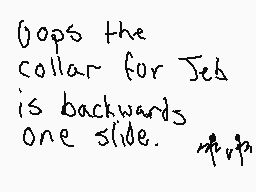 Oops the
collar for Jeb
is backwards
one slide.